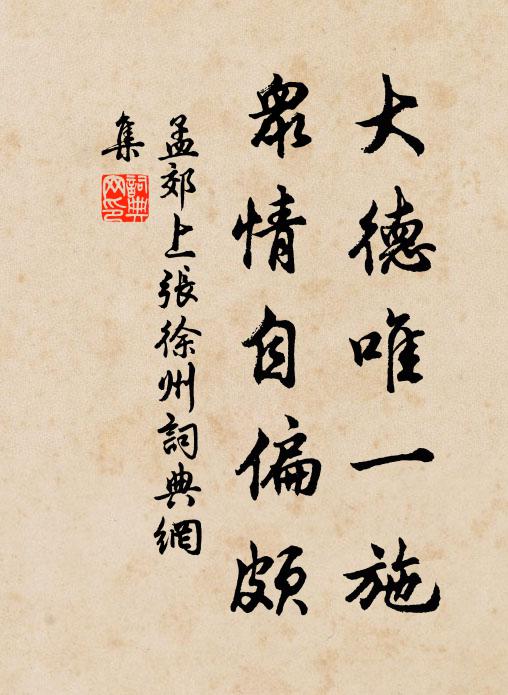 大德唯一施
眾情自偏頗
孟郊上張徐州詞典網
集
詞典
网印